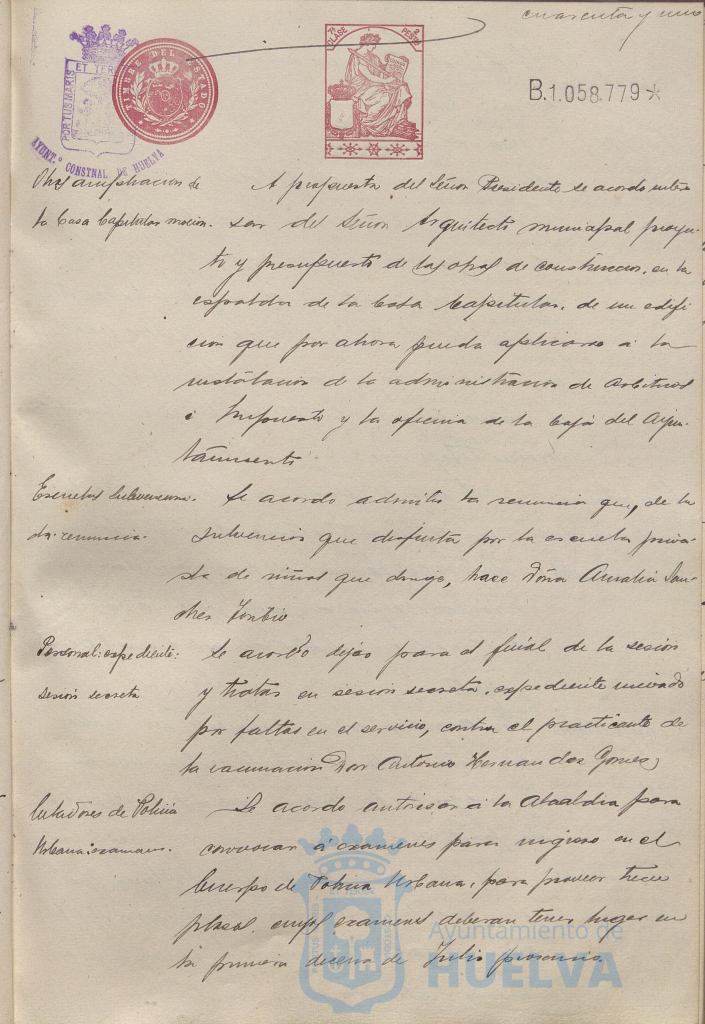 cuarenta y uno
PORTUS MARIS ET TERR
AYUNT.º CONSTNAL. DE HUELVA
TIMBRE DEL ESTADO
7ª CLASE
2 PESTS
B.1.058.779*
Obras ampliacion de
la Casa Capitular mocion.
A propuesta del Señor Presidente se acordó intere
sar del Señor Arquitecto municipal proyec
to y presupuesto de las obras de construccion, en la
espalda de la Casa Capitular, de un edifi
cio que por ahora pueda aplicarse a la
instalacion de la administracion de Arbitrios
é Impuesto y la oficina de la Caja del Ayun-
tamiento
Escuelas subvenciona-
das. renuncia.
Se acordó admitir la renuncia que, de la
subvencion que disfruta por la escuela priva-
da de niñas que dirije, hace Doña Amalia San
chez Toribio
Personal: expediente:
sesion secreta
Se acordó dejar para el final de la sesion
y tratar en sesion secreta, expediente incoado
por faltas en el servicio, contra el practicante de
la vacunacion Don Antonio Hernandez Gomez
Celadores de Policia
Urbana: examenes.
Se acordó autorizar á la Alcaldia para
convocar á examenes para ingreso en el
Cuerpo de Policia Urbana, para proveer trece
plazas, cuyos examenes deberan tener lugar en
la primera decena de Julio proximo.
Ayuntamiento de
HUELVA